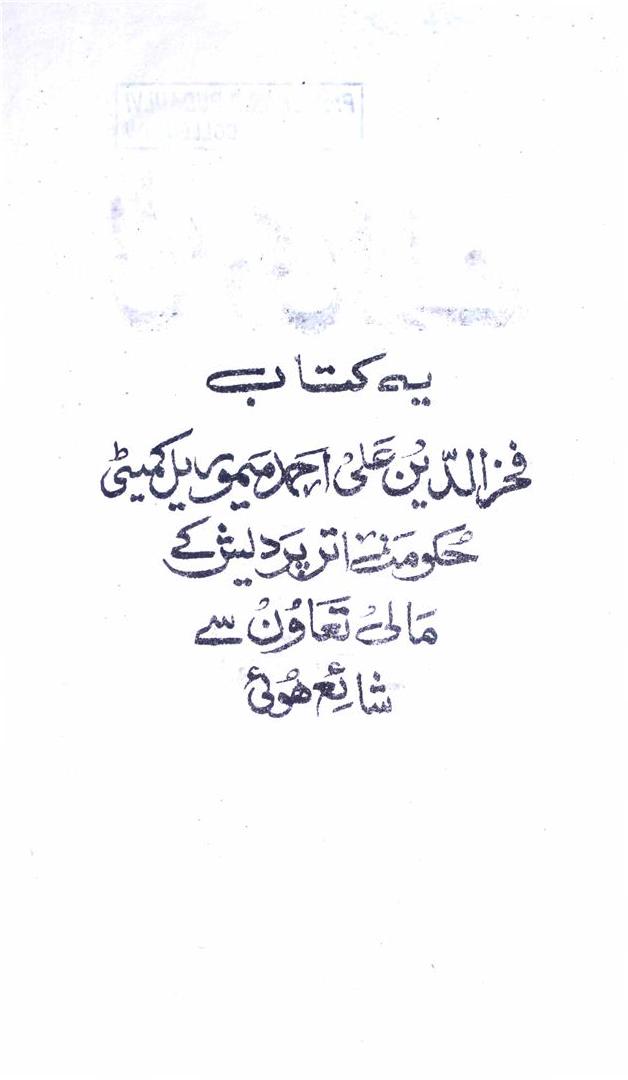 یہ کتاب
فخر الدّین علی احمد میموریل کمیٹی
حکومت اتر پردیش کے
مالی تعاون سے
شائع ہوئی